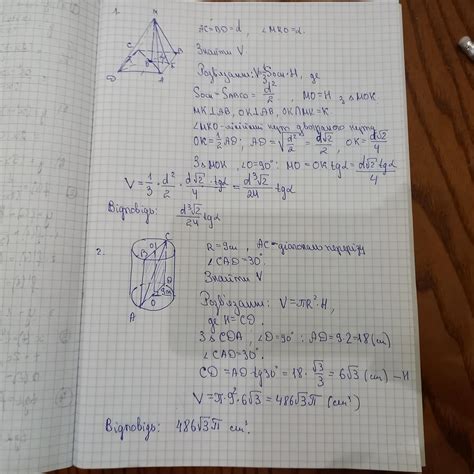 1.
M
C
B
O
K
D
A
AC=BD=d, ∠MKO=α.
Знайти V
Розв'язання: V=1/3 Sосн·H, де
Sосн = SABCD = d²/2, MO=H з △MOK
MK⊥AB, OK⊥AB, OK∩MK=K
∠MKO-лінійний кут двогранного кута
OK=1/2 AD; AD=√(d²/2)=d√2/2, OK=d√2/4
З △MOK, ∠O=90°: MO=OK tgα=d√2 tgα/4
V=1/3·d²/2·d√2/4·tgα=d³√2/24 tgα
Відповідь: d³√2/24 tgα
2.
C
B
O₁
D
9cm
O
A
R=9см, AC-діагональ перерізу
∠CAD=30°.
Знайти V
Розв'язання: V=πR²·H,
де H=CD.
З △CDA, ∠D=90°: AD=9·2=18(cm)
∠CAD=30°.
CD=AD·tg30°=18·√3/3=6√3 (cm)-H
V=π·9²·6√3=486√3π (cm³)
Відповідь: 486√3π cm³.